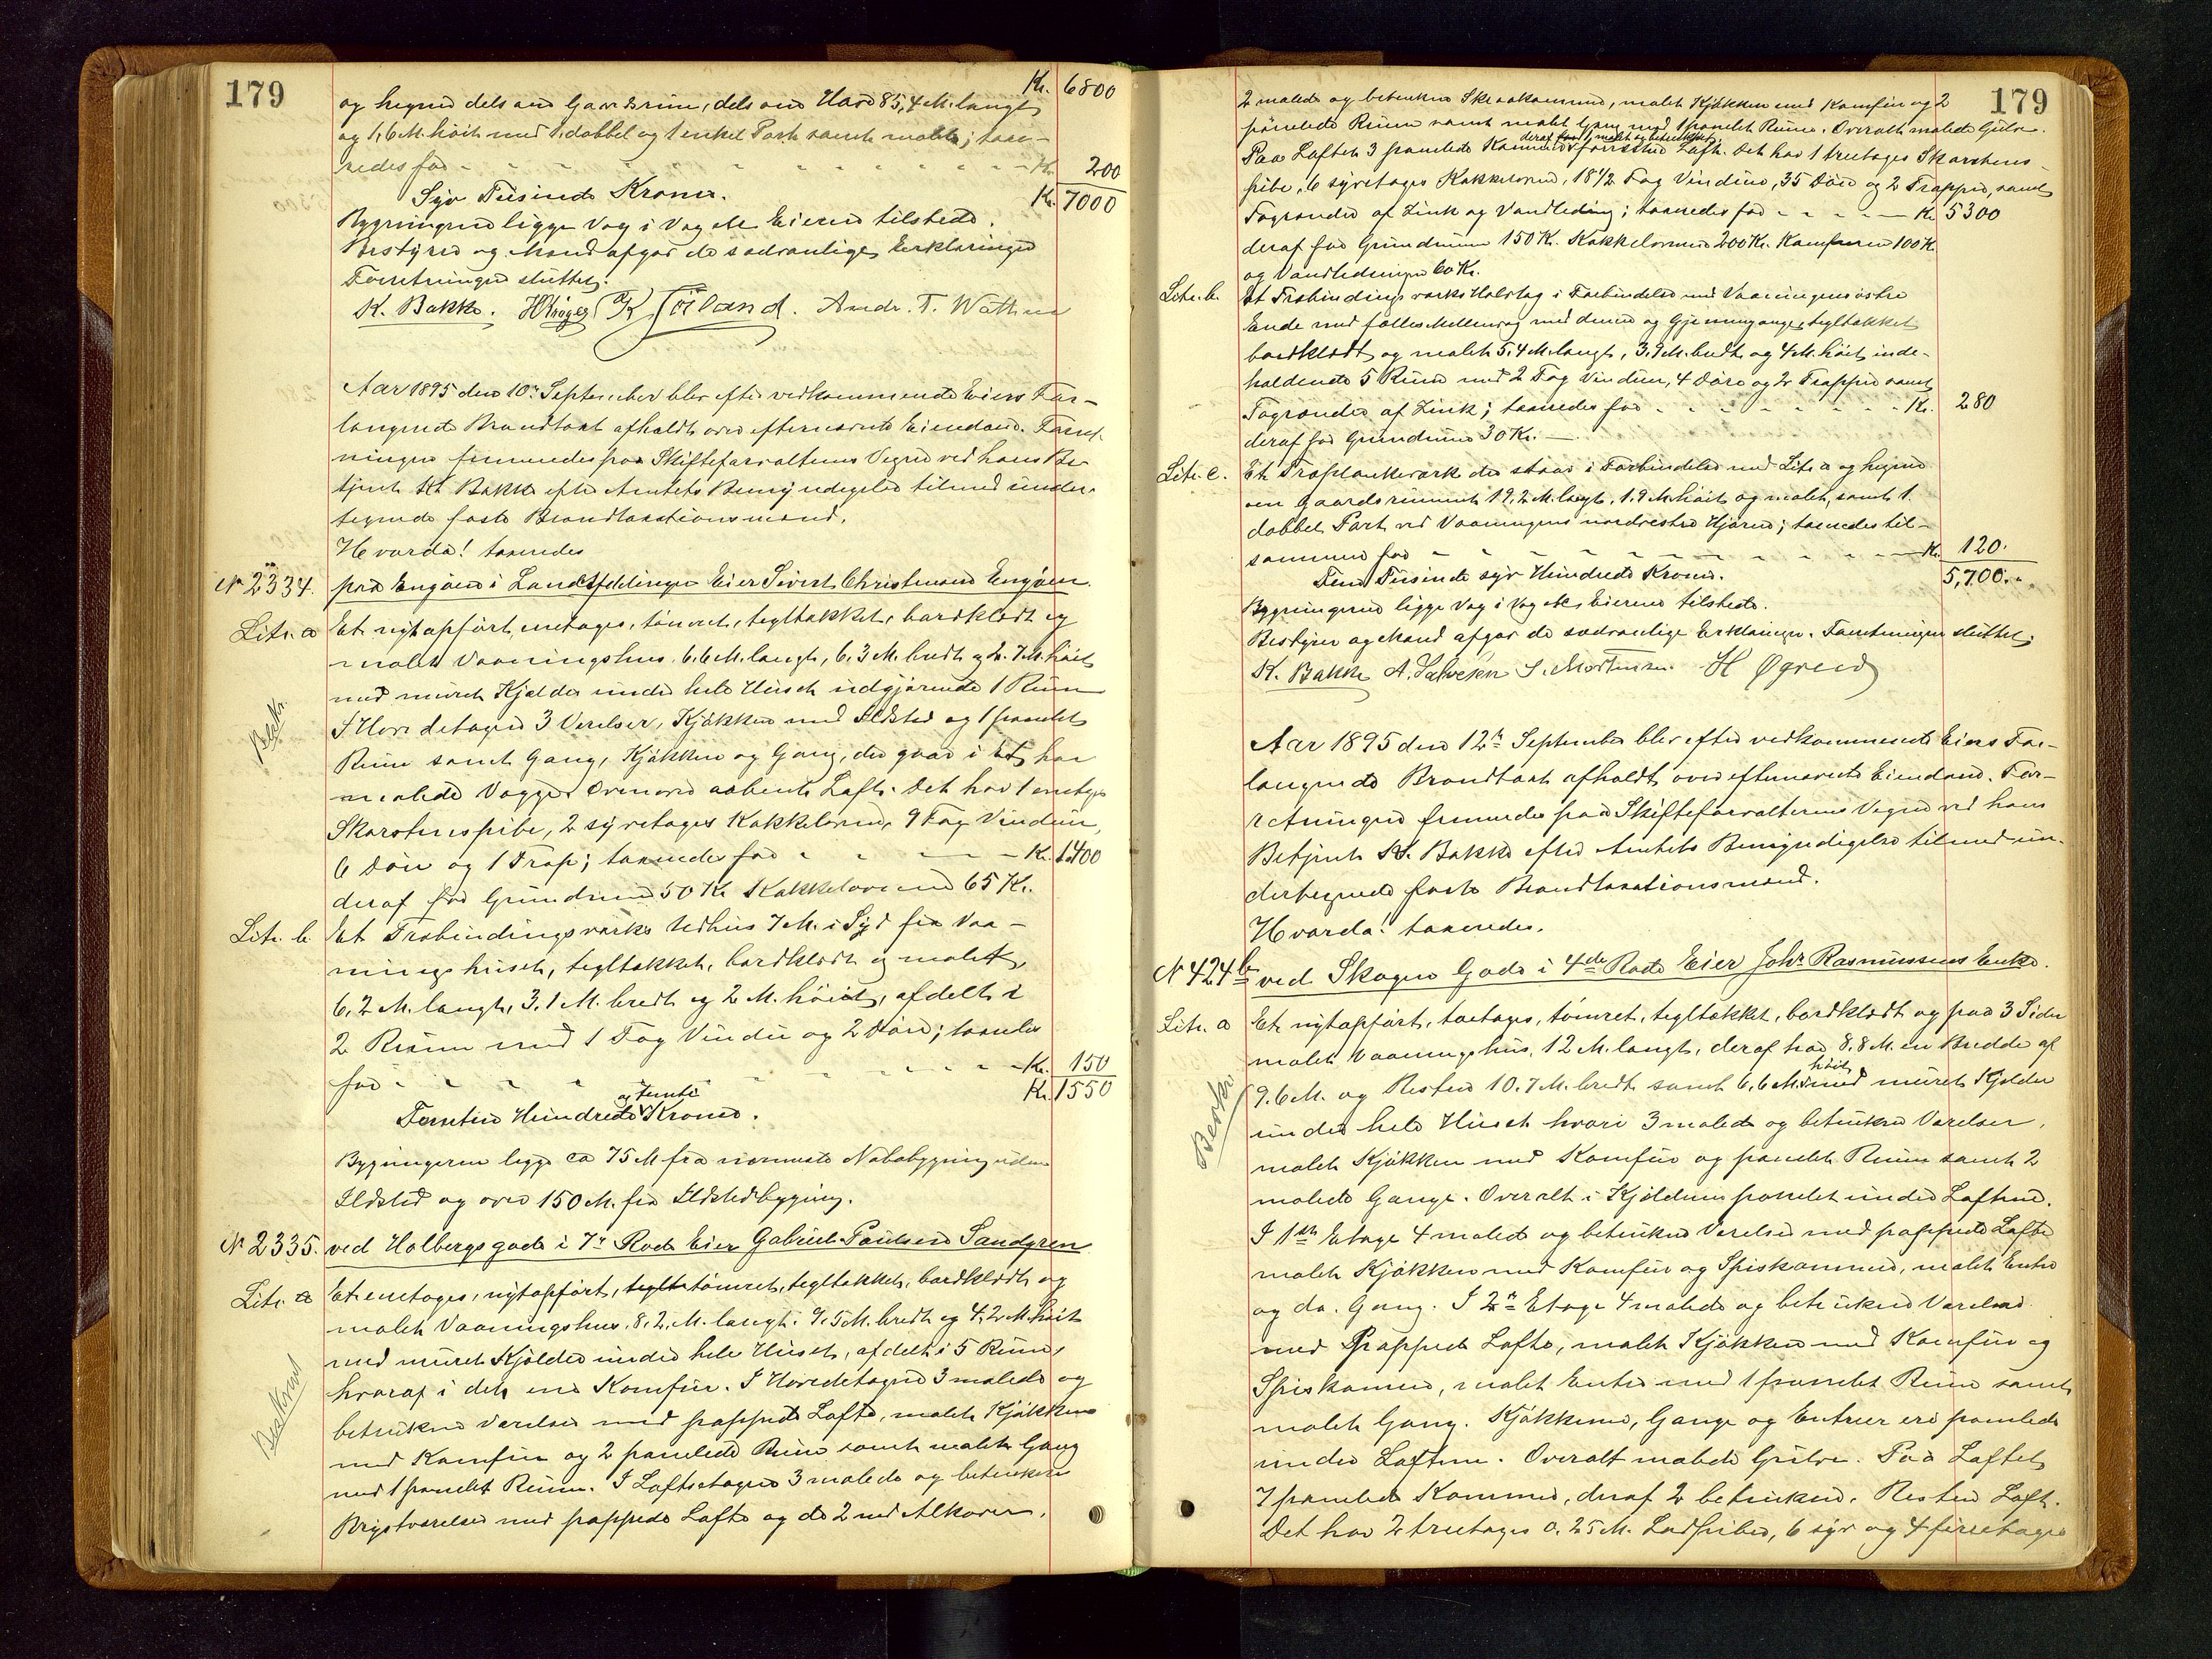 179
Kr. 6800
og hegned dels om Gaardsrum, dels om Have 85,4 M. langt
og 1,6 M. høit med 1 dobbel og 1 enkel Port samt malet; taxe-
redes for - - - Kr. 200
Syv Tusinde Kroner. Kr. 7000
Bygningerne ligge Væg i Væg etc Eieren tilstede.
Bestyrer og Mænd afgav de sædvanlige Erklæringer
Forretningen sluttet.
K. Bakke. H Krøger K. Føiland. Andr. T. Wathne
Aar 1895 den 10de September blev efter vedkommende Eiers For-
langende Brandtaxt afholdt over efternævnte Eiendomme. Forret-
ningen fremmedes paa Skifteforvalterens Vegne ved hans Be-
tjent K. Bakke efter Amtets Bemyndigelse tilmed under-
tegnede faste Brandtaxationsmænd.
Hvorda! taxeredes
No 2334. paa Engøen i Landafdelingen Eier Sivert Christensen Engøen.
Litr. a Et nyt opført, enetages, tømret, tegltækket, bordklædt og
malet Vaaningshus. 6,6 M. langt, 6,3 M. bredt og 2,7 M. høit
med muret Kjelder under hele Huset udgjørende 1 Rum
I Hovedetagen 3 Værelser, Kjøkken med Ildsted og 1 panelet
Rum samt Gang, Kjøkken og Gang, der gaar i Et, har
malede Vægge. Ovenover aabent Loft. Det har 1 enetages
Skorstenspibe, 2 syvetages Kakkelovne, 9 Fag Vinduer,
6 Døre og 1 Trap; taxeredes for - - - Kr. 1400
deraf for Grundmur 50 Kr Kakkelovnene 65 Kr.
Litr. b. Et Træbindingsværks Udhus 7 M. i Syd fra Vaa-
ningshuset, tegltækket, bordklædt og malet,
6,2 M. langt, 3,1 M. bredt og 2 M. høit, afdelt i
2 Rum med 1 Fag Vindu og 2 Døre; taxeredes
for - - - Kr. 150
Kr. 1550
og femti
Femten Hundrede Kroner.
Bygningerne ligge ca 75 M fra nærmeste Nabobygning uden
Ildsted og over 150 M. fra Ildstedbygning.
No 2335. ved Holbergsgade i 7de Rode Eier Gabriel Paulsen Sandgren
Litr. a Et enetages, nytopført, teglt tømret, tegltækket, bordklædt og
malet Vaaningshus. 8,2 M. langt. 9,5 M. bredt og 4,2 M. høit
med muret Kjelder under hele Huset, afdelt i 5 Rum,
hvoraf i det ene Komfur. I Hovedetagen 3 malede og
betrukne Værelser med pappede Lofte, malet Kjøkken
med Komfur og 2 panelede Rum samt malet Gang
med 1 panelet Rum. I Loftsetagen 3 malede og betrukne
Brystværelser med pappede Lofte og de 2 med Alkover.
179
2 malede og betrukne Skraakammere, malet Kjøkken med Komfur og 2
panelede Rum samt malet Gang med 1 panelet Rum. Overalt malede Gulve.
deraf 1 malet og betrukket
Paa Loftet 3 panelede Kammere forresten Loft. Det har 1 treetages Skorstens-
pibe, 6 syvetages Kakkelovne, 18 1/2 Fag Vinduer, 35 Døre og 2 Trapper, samt
Tagrender af Zink og Vandledning; taxeredes for - - - Kr. 5300
deraf for Grundmuren 150 Kr. Kakkelovnene 200 Kr. Komfurene 100 Kr
og Vandledningen 60 Kr.
Litr. b. Et Træbindingsværks Halvtag i Forbindelse med Vaaningens østre
Ende med fælles Mellemvæg med denne og Gjennemgange, tegltækket
bordklædt og malet 5,4 M. langt, 3,9 M. bredt og 4 M. høit, inde-
holdende 5 Rum med 2 Fag Vinduer, 4 Døre og 2 Trapper samt
Tagrender af Zink; taxeredes for - - - Kr. 280
deraf for Grundmur 30 Kr. —
Litr. c. Et Træplankeværk der staar i Forbindelse med Litr a og hegner
om Gaardsrummet 19,2 M. langt, 1,9 M. høit og malet, samt 1
dobbel Port ved Vaaningens nordvestre Hjørne; taxeredes til-
sammen for - - - Kr. 120.
Fem Tusinde syv Hundrede Kroner. 5,700. -
Bygningerne ligge Væg i Væg etc Eieren tilstede.
Bestyrer og Mænd afgav de sædvanlige Erklæringer. Forretningen sluttet.
K. Bakke A. Salvesen S. Mortensen. H Øgreid
Aar 1895 den 12te September blev efter vedkommende Eiers For-
langende Brandtaxt afholdt over efternævnte Eiendom. For-
retningen fremmedes paa Skifteforvalterens Vegne ved hans
Betjent K. Bakke efter Amtets Bemyndigelse tilmed un-
dertegnede faste Brandtaxationsmænd.
Hvorda! taxeredes.
No 424 b ved Skagen Gade i 4de Rode Eier Johs Rasmussens Enke.
Litr. a Et nytopført, toetages, tømret, tegltækket, bordklædt og paa 3 Sider
malet Vaaningshus, 12 M. langt, deraf har 8,8 M. en Bredde af
høit
9,6 M. og Resten 10,7 M. bredt samt 6,6 M. med muret Kjelder
under hele Huset hvori 3 malede og betrukne Værelser,
malet Kjøkken med Komfur og panelet Rum samt 2
malede Gange. Overalt i Kjelderen panelet under Loftene.
I 1ste Etage 4 malede og betrukne Værelser med pappede Lofte
malet Kjøkken med Komfur og Spiskammer, malet Entre
og do. Gang. I 2den Etage 4 malede og betrukne Værelser
med pappede Lofte, malet Kjøkken med Komfur og
Spiskammer, malet Entre med 1 panelet Rum samt
malet Gang. Kjøkkener, Gange og Entreer ere panelede
under Loftene. Overalt malede Gulve. Paa Loftet
7 panelede Kammere, deraf 2 betrukne. Resten Loft.
Det har 2 treetages 0,25 M. Ladpiber, 6 syv og 4 fireetages